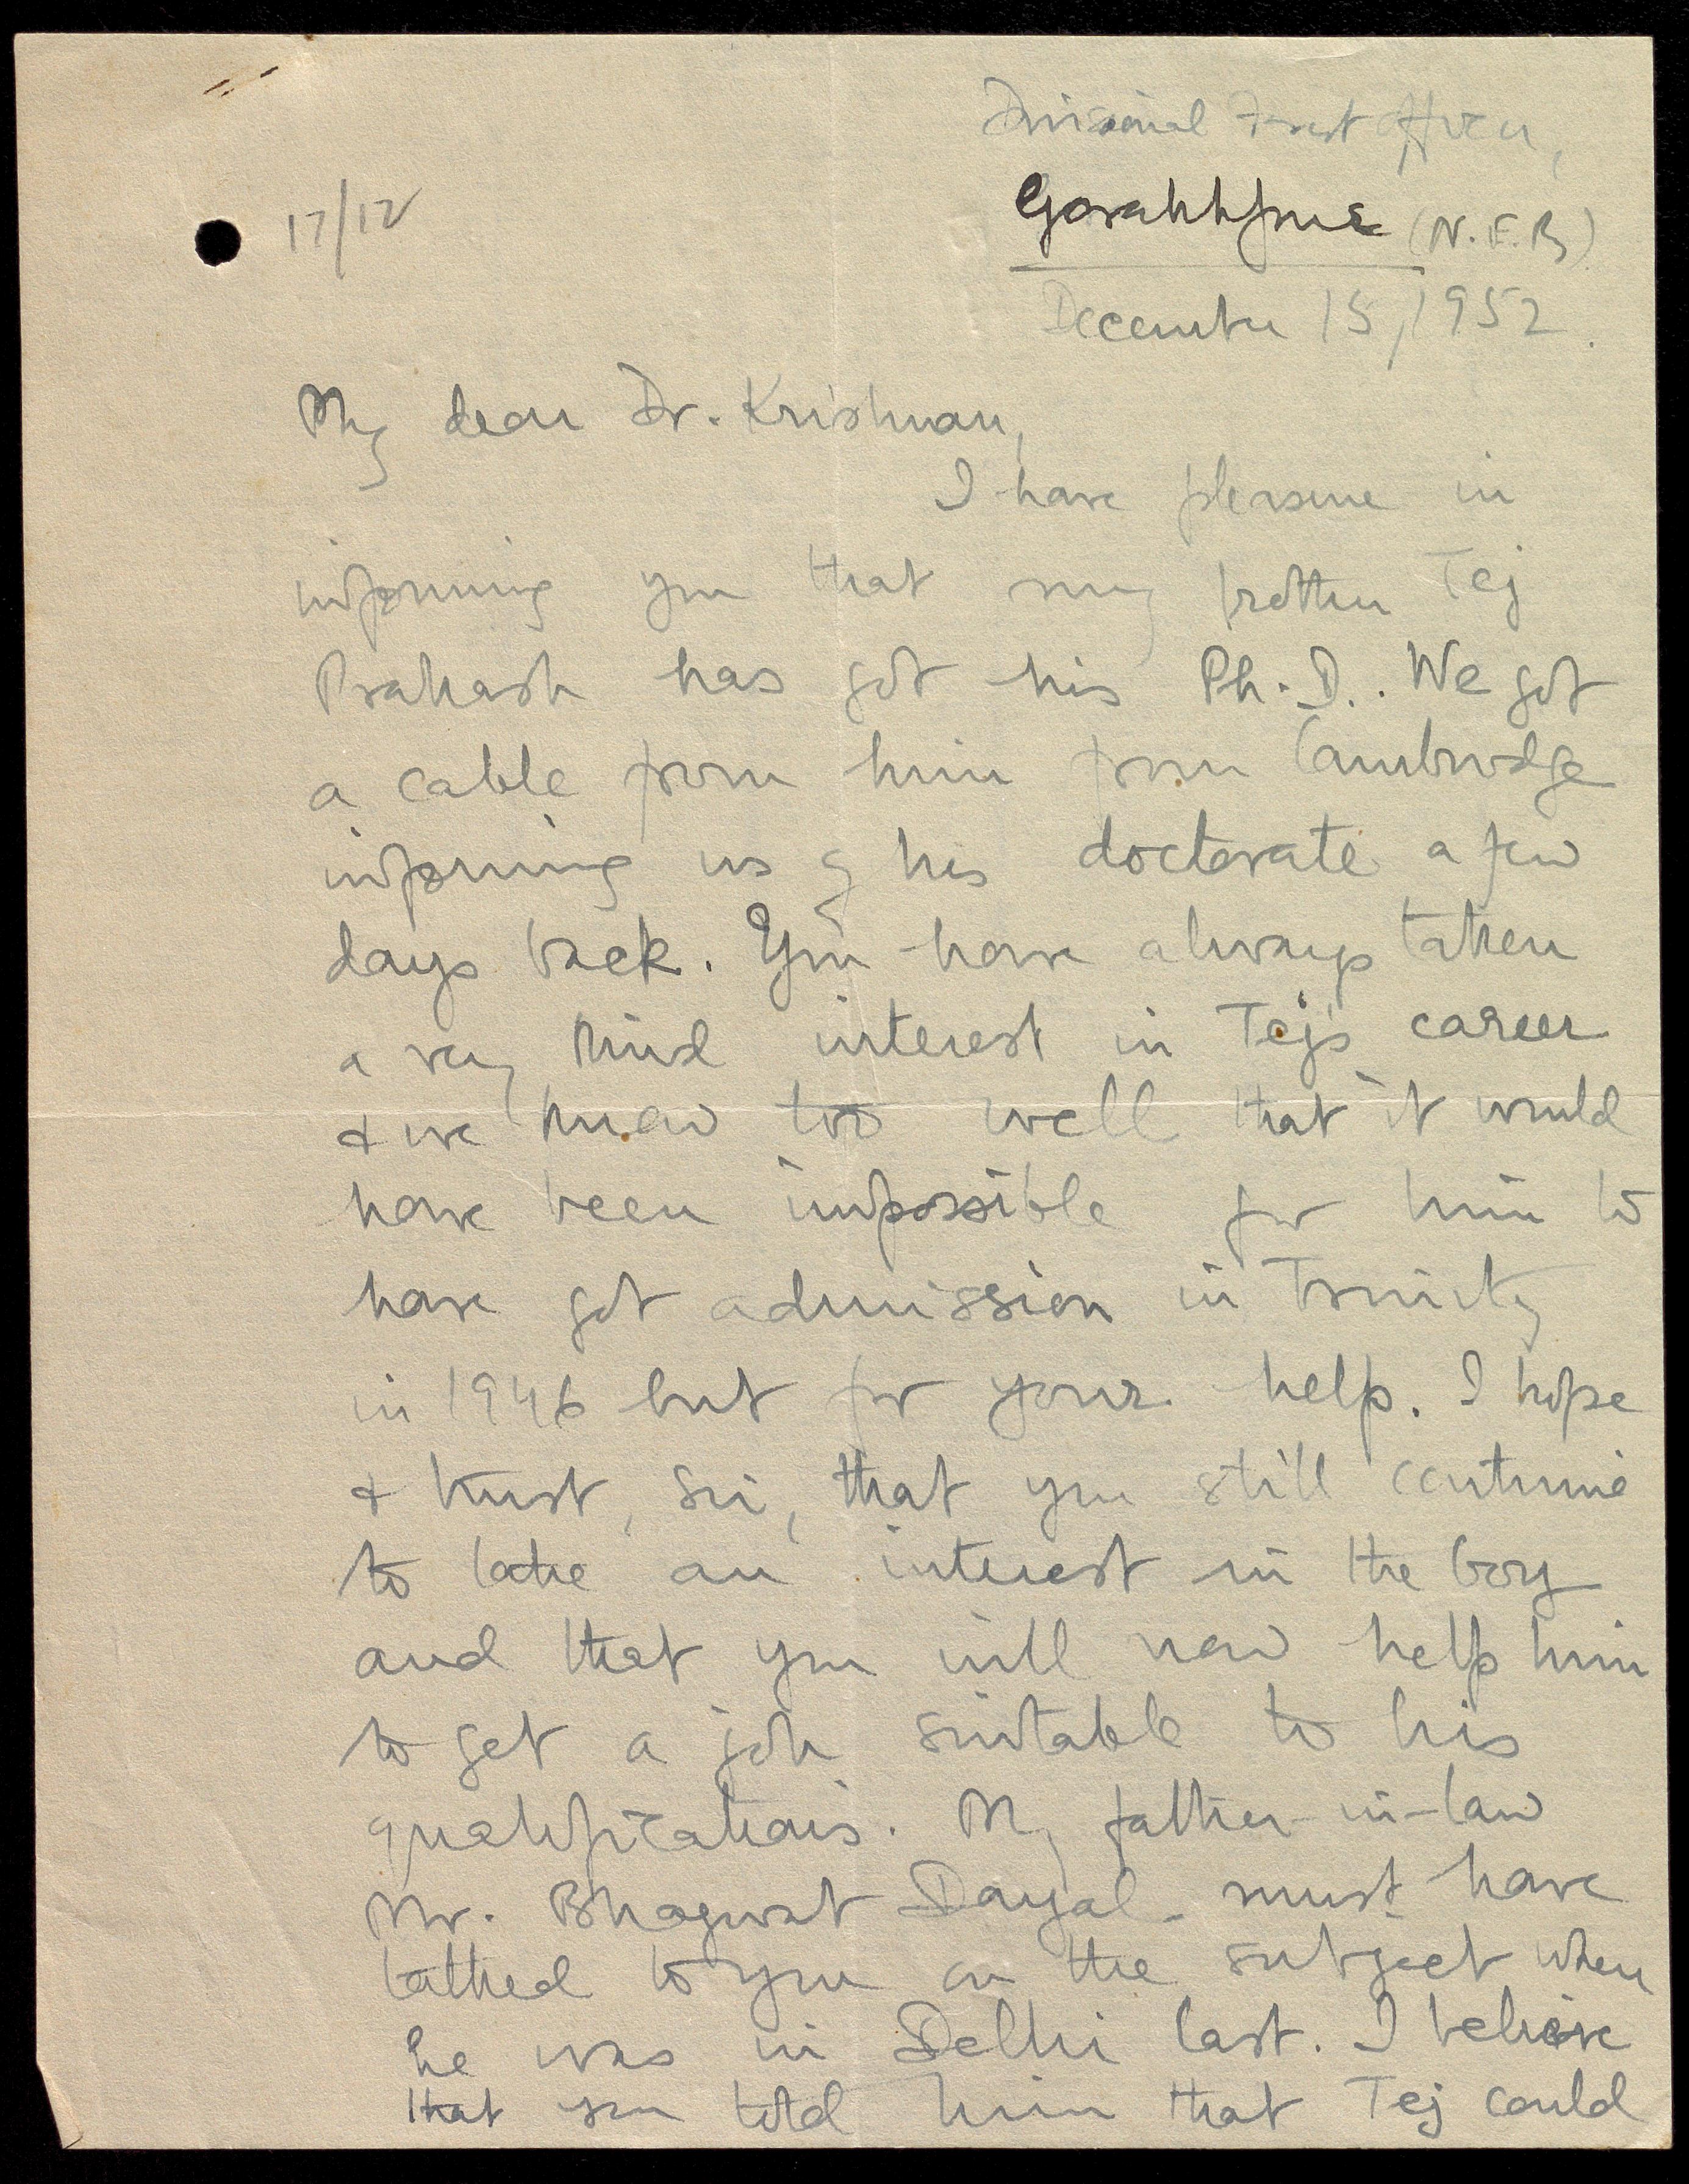 Divisional Forest Officer,
Gorakhpur (N.E.R)
17/12
December 15, 1952.
My dear Dr. Krishnan,
I have pleasure in
informing you that my brother Tej
Prakash has got his Ph.D.. We got
a cable from him from Cambridge
informing us of his doctorate a few
days back. You have always taken
a very kind interest in Tej's career
& we know too well that it would
have been impossible for him to
have got admission in Trinity
in 1946 but for your help. I hope
& trust, Sir, that you still continue
to take an interest in the boy
and that you will now help him
to get a job suitable to his
qualifications. My father-in-law
Mr. Bhagwat Dayal must have
talked to you on the subject when
he was in Delhi last. I believe
that you told him that Tej could